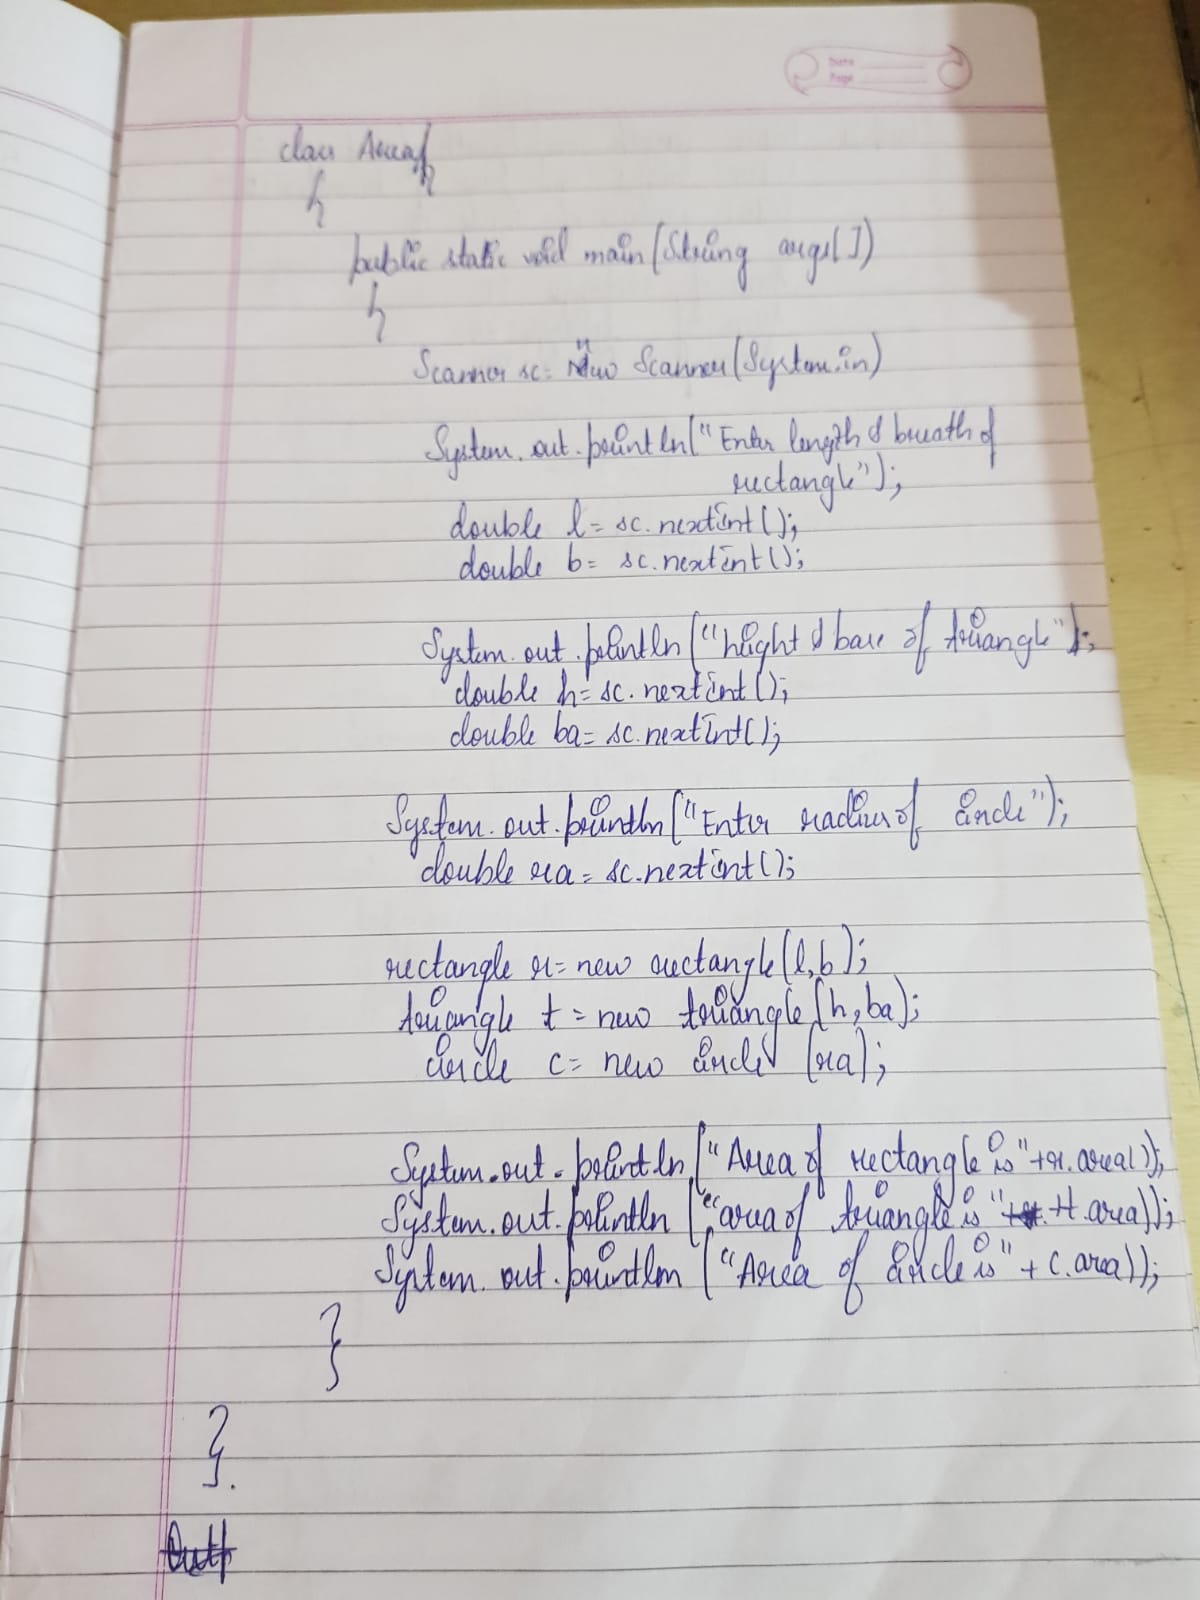 Date
Page
class Area
{
public static void main(String args[])
{
Scanner sc= new Scanner(System.in)
System.out.println("Enter length & breath of
rectangle");
double l= sc.nextint();
double b= sc.nextint();
System.out.println("height & base of triangle");
double h= sc.nextint();
double ba= sc.nextint();
System.out.println("Enter radius of circle");
double ra= sc.nextint();
rectangle r= new rectangle(l,b);
triangle t= new triangle(h,ba);
circle c= new circle (ra);
System.out.println("Area of rectangle is"+r.area());
System.out.println("area of triangle is"+t.area));
System.out.println("Area of circle is"+c.area));
}
}.